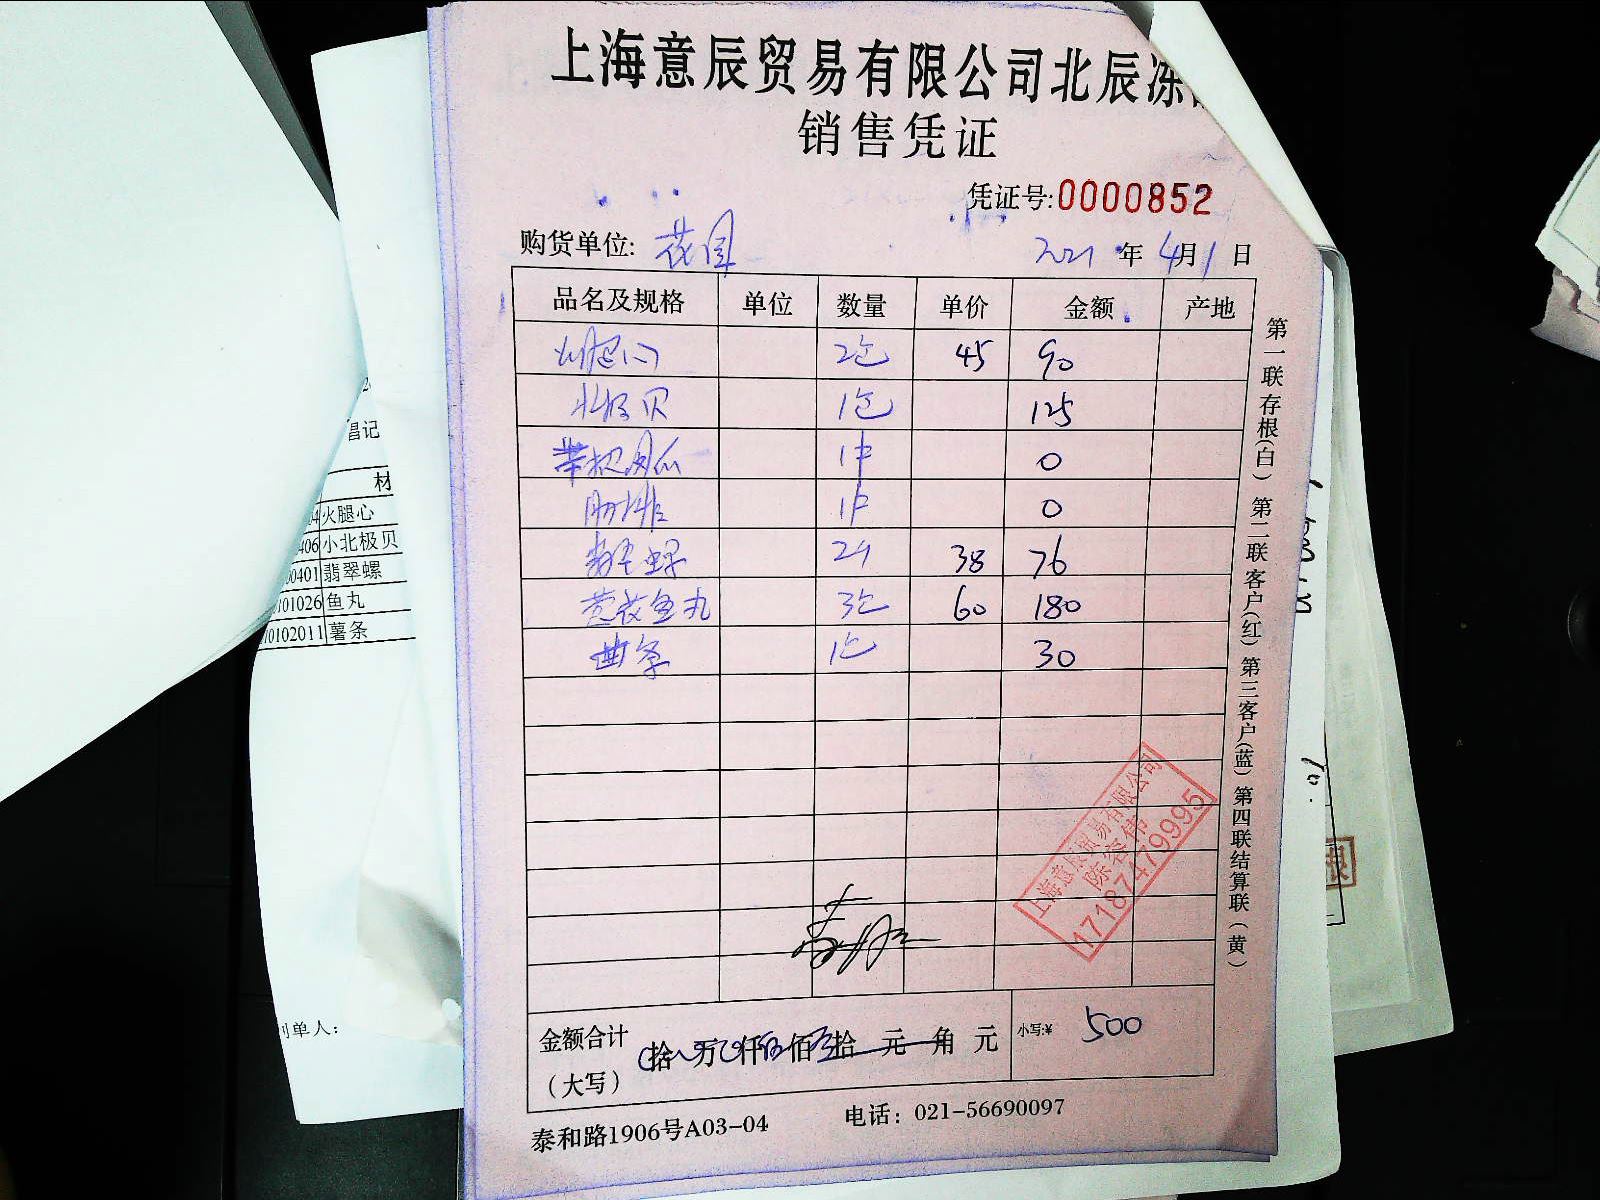 上海意辰贸易有限公司北辰冻
销售凭证
凭证号:0000852
购货单位: 花园 2021年4月1日
品名及规格 单位 数量 单价 金额 产地
火腿心 2包 45 90
北极贝 1包 125
1件 0
肋排 1件 0
翡翠螺 2斤 38 76
鱼丸 3包 60 180
薯条 1包 30
上海意辰贸易有限公司
陈容伟
17187479995
金额合计 拾 万 仟 佰 拾 元 角 元 小写:¥ 500
(大写)
泰和路1906号A03-04 电话: 021-56690097
第一联存根(白) 第二联客户(红) 第三客户(蓝) 第四联结算联(黄)
材
火腿心
406 小北极贝
00401 翡翠螺
101026 鱼丸
0102011 薯条
单人: